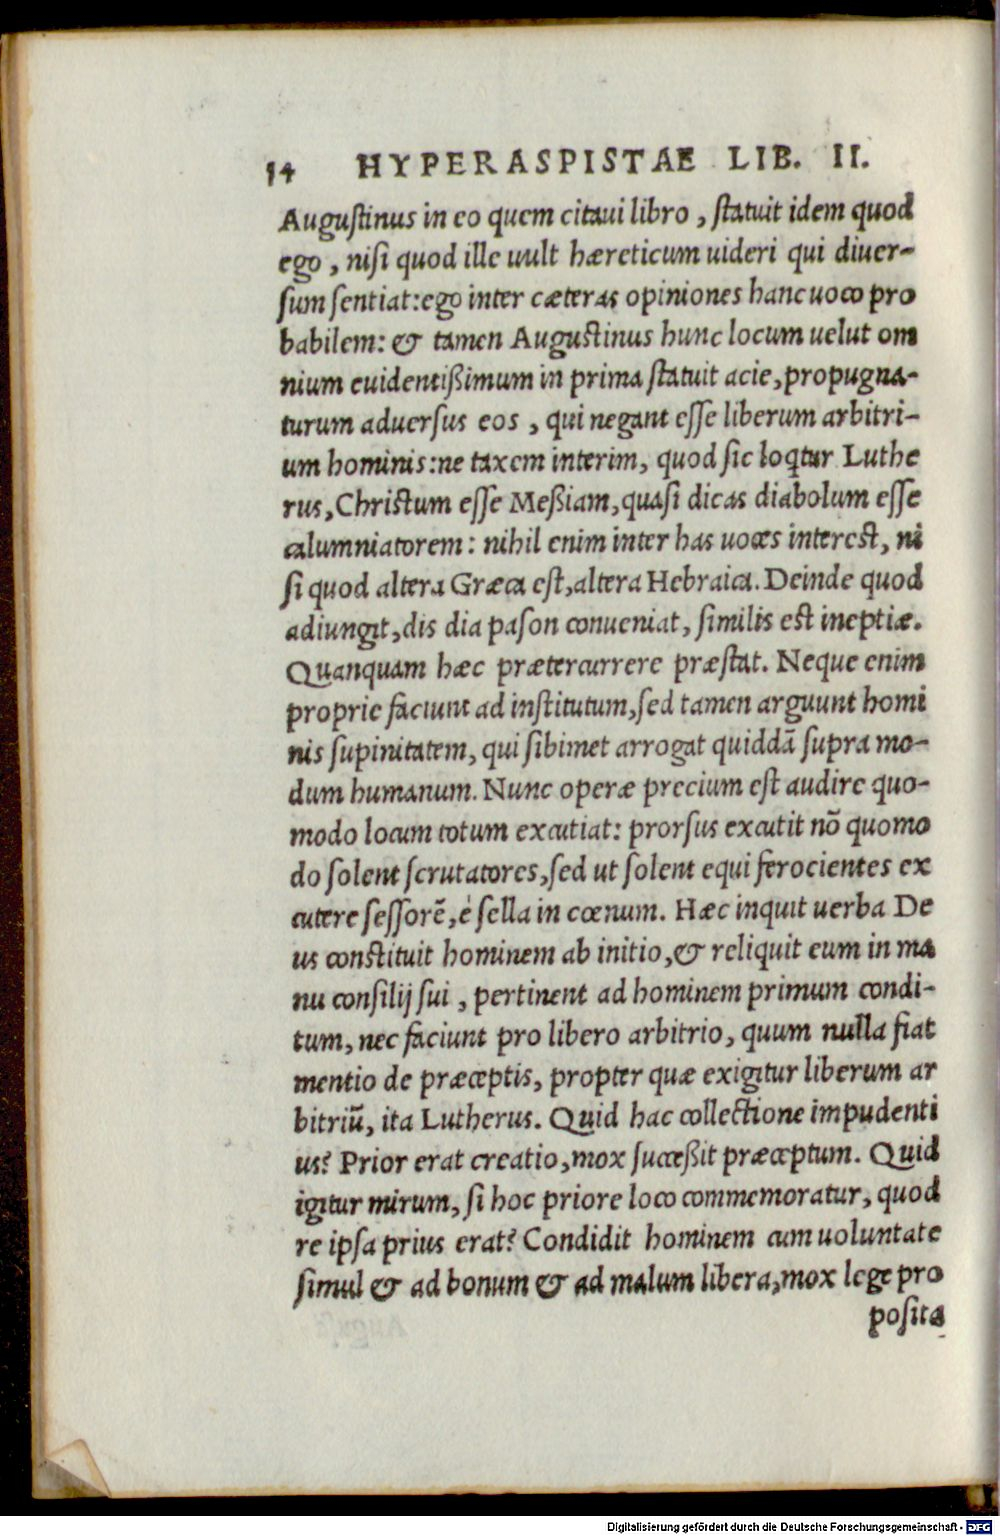 14 HYPERASPISTAE LIB. II.
Augustinus in eo quem citaui libro, ſtatuit idem quod
ego, niſi quod ille uult hæreticum uideri qui diuer-
ſum ſentiat: ego inter cæteras opiniones hanc uoco pro
babilem: & tamen Auguſtinus hunc locum uelut om
nium euidentißimum in prima ſtatuit acie, propugna-
turum aduerſus eos, qui negant eſſe liberum arbitri-
um hominis: ne taxem interim, quod ſic loqtur Luthe
rus, Chriſtum eſſe Meßiam, quaſi dicas diabolum eſſe
calumniatorem: nihil enim inter has uoces intereſt, ni
ſi quod altera Græca eſt, altera Hebraica. Deinde quod
adiungit, dis dia paſon conueniat, ſimilis eſt ineptiæ.
Quanquam hæc prætercurrere præſtat. Neque enim
proprie faciunt ad inſtitutum, ſed tamen arguunt homi
nis ſupinitatem, qui ſibimet arrogat quiddã ſupra mo-
dum humanum. Nunc operæ precium eſt audire quo-
modo locum totum excutiat: prorſus excutit nõ quomo
do ſolent ſcrutatores, ſed ut ſolent equi ferocientes ex
cutere ſeſſorẽ, è ſella in cœnum. Hæc inquit uerba De
us conſtituit hominem ab initio, & reliquit eum in ma
nu conſilij ſui, pertinent ad hominem primum condi-
tum, nec faciunt pro libero arbitrio, quum nulla fiat
mentio de præceptis, propter quæ exigitur liberum ar
bitriũ, ita Lutherus. Quid hac collectione impudenti
us? Prior erat creatio, mox ſucceßit præceptum. Quid
igitur mirum, ſi hoc priore loco commemoratur, quod
re ipſa prius erat? Condidit hominem cum uoluntate
ſimul & ad bonum & ad malum libera, mox lege pro
poſita
Digitalisierung gefördert durch die Deutsche Forschungsgemeinschaft - DFG